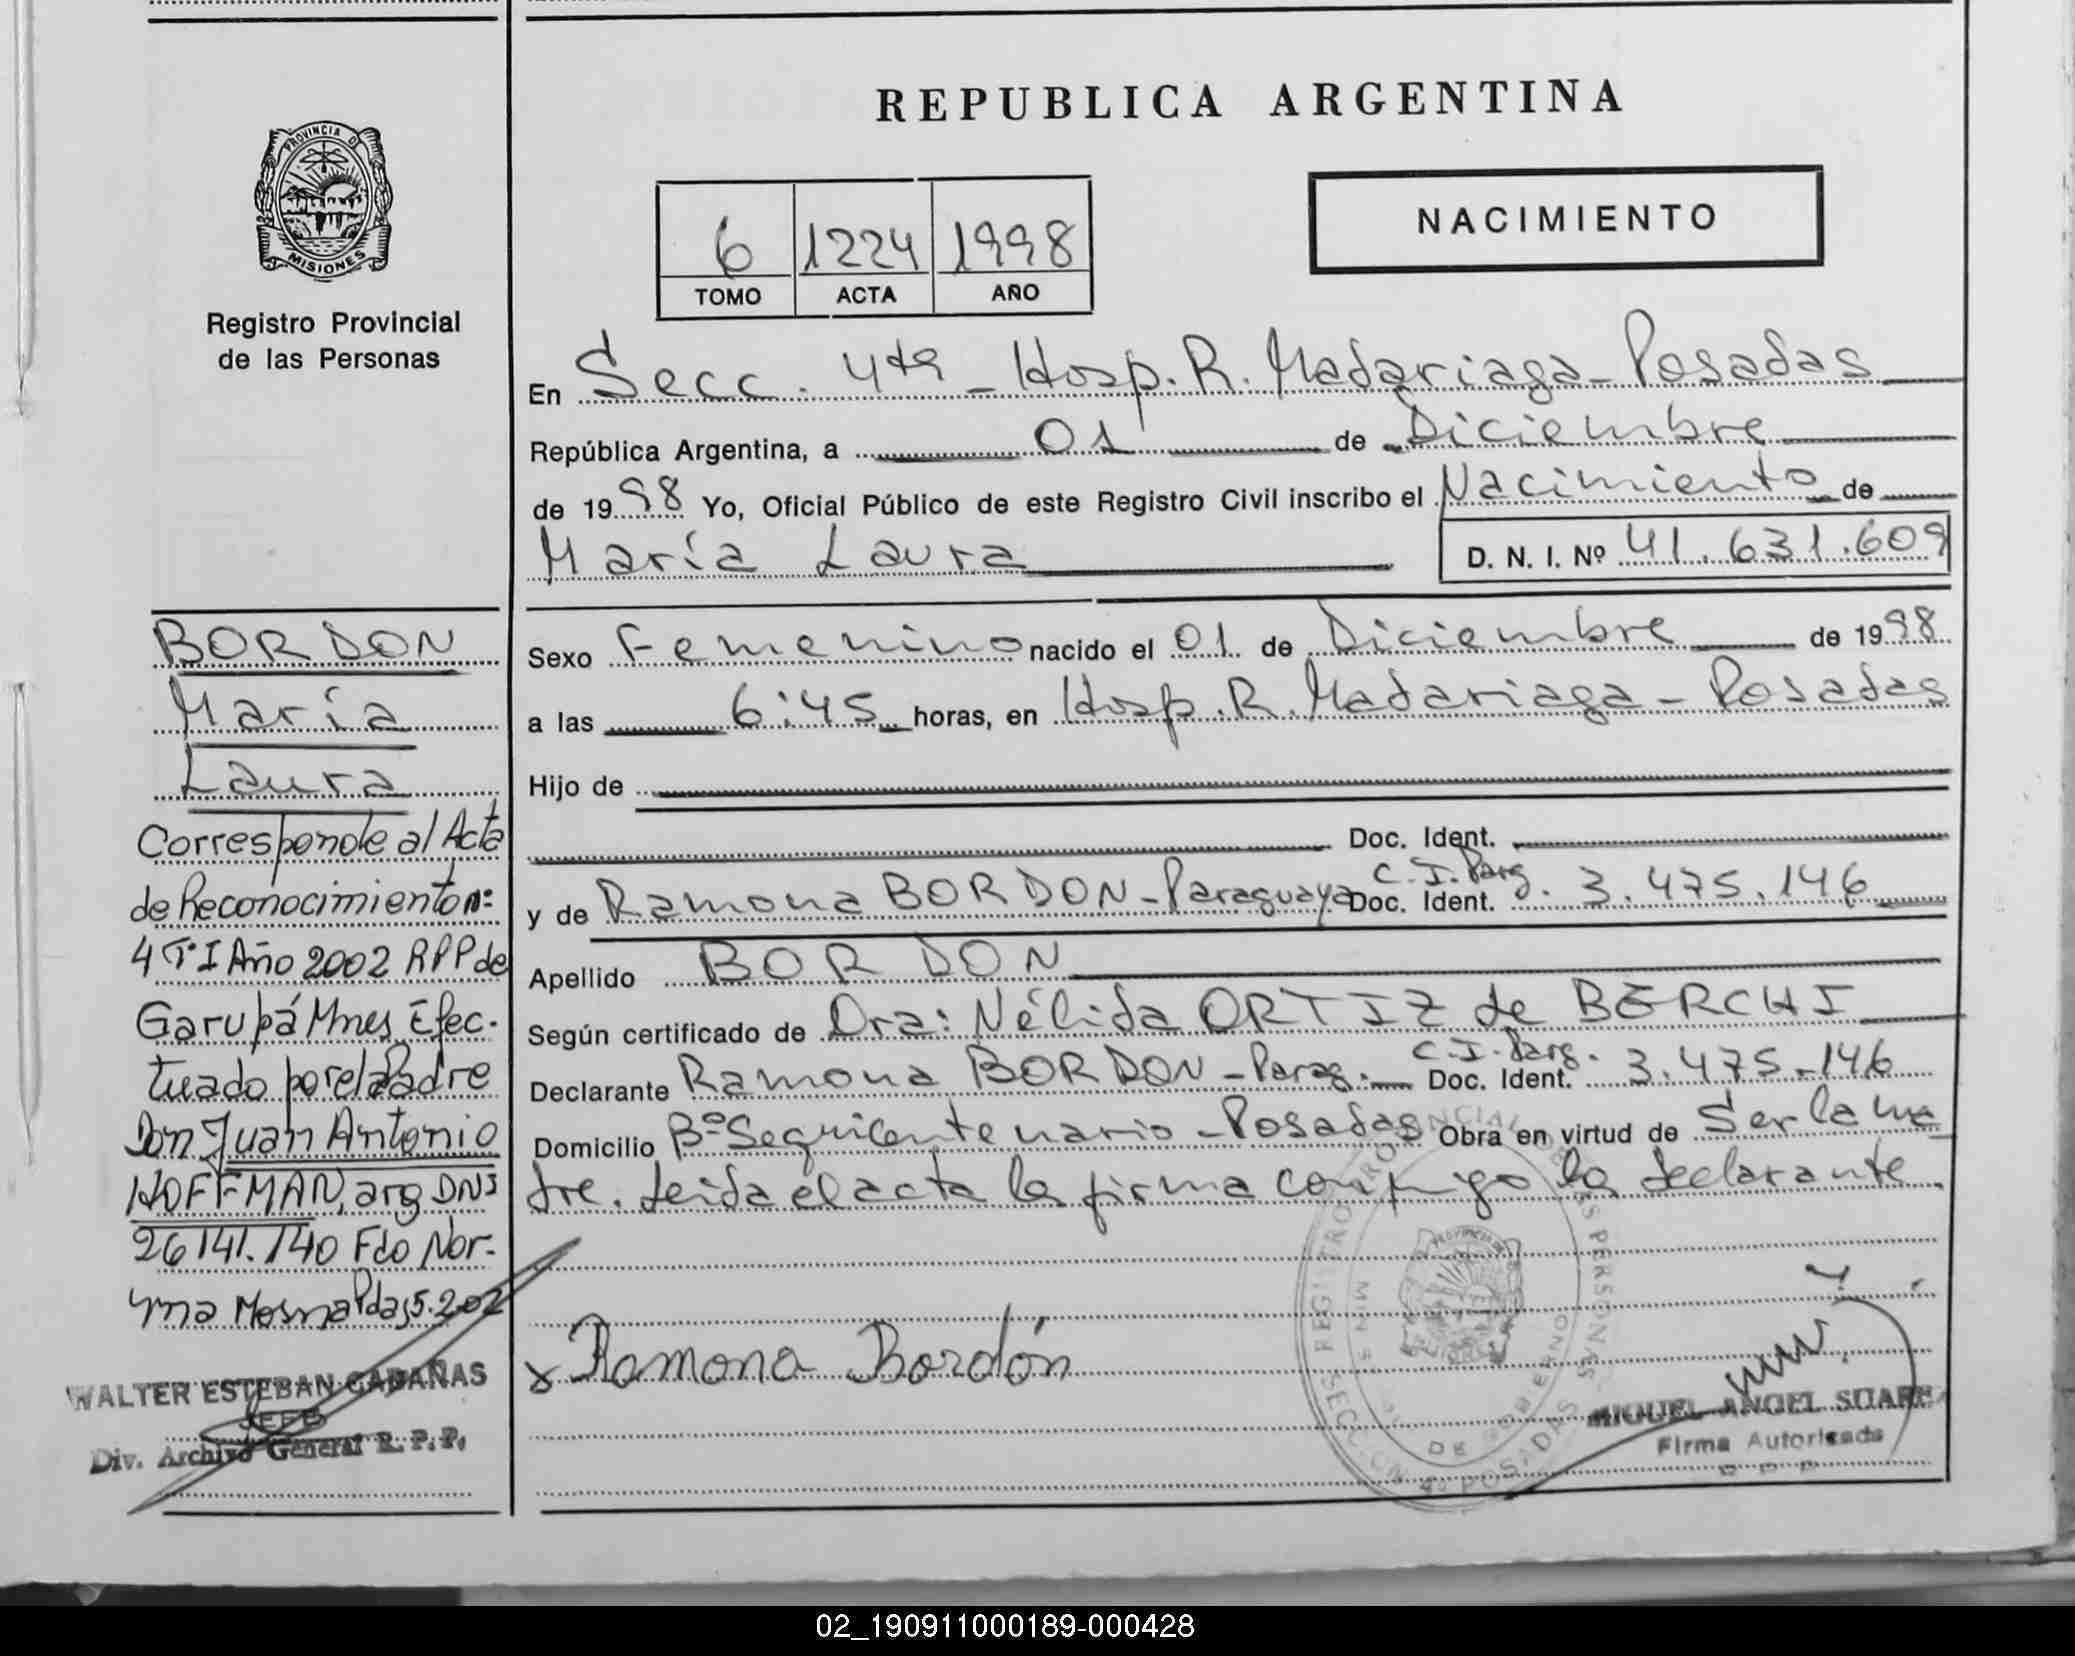 REPUBLICA ARGENTINA
PROVINCIA DE
MISIONES
Registro Provincial
de las Personas
6 1224 1998
TOMO ACTA AÑO
NACIMIENTO
En Secc. 4ta - Hosp. R. Madariaga - Posadas
República Argentina, a 01 de Diciembre
de 1998 Yo, Oficial Público de este Registro Civil inscribo el Nacimiento de
María Laura D. N. I. Nº 41.631.609
Sexo Femenino nacido el 01 de Diciembre de 1998
a las 6:45 horas, en Hosp. R. Madariaga - Posadas
Hijo de
Doc. Ident.
y de Ramona BORDON - Paraguaya Doc. Ident. C.I. Parg. 3.475.146
Apellido BORDON
Según certificado de Dra: Nélida ORTIZ de BERCHI
Declarante Ramona BORDON - Parag. Doc. Ident. C.I. Parg. 3.475.146
Domicilio Bº Sequicentenario - Posadas Obra en virtud de Ser la ma
dre. Leida el acta la firma conmigo la declarante.
x Ramona Bordón
MIGUEL ANGEL SUAREZ
Firma Autorizada
BORDON
María
Laura
Corresponde al Acta
de Reconocimiento nº:
4 Tº I Año 2002 RPP de
Garupá Mnes Efec-
tuado por el Padre
Don Juan Antonio
HOFFMAN, arg DNI
26141.140 Fdo Nor-
ma Pdas 5.2.02
WALTER ESTEBAN CABAÑAS
JEFE
Div. Archivo General R. P. P.
02_190911000189-000428